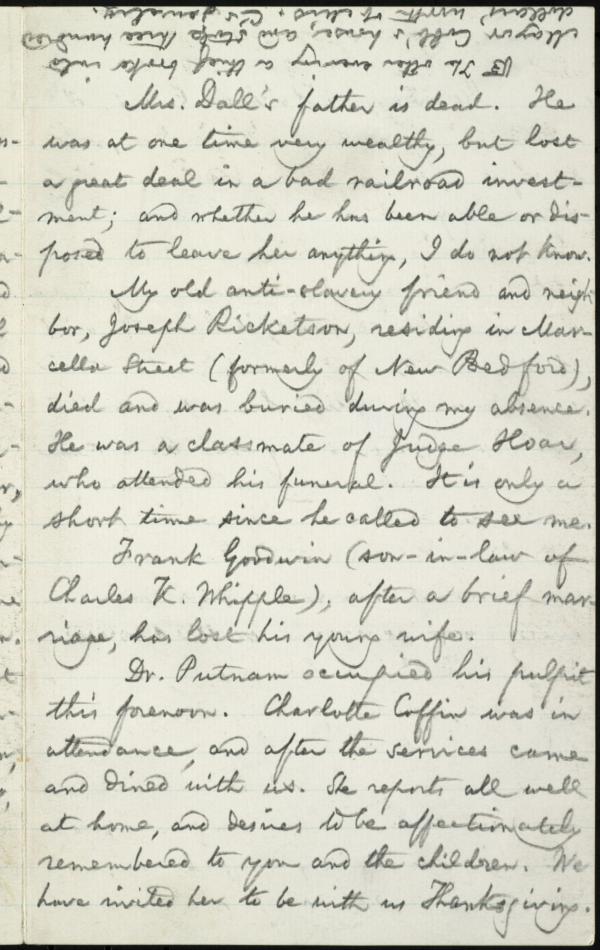 ☞ The other evening a thief broke into
Mayor Cobb's house, and stole three hundred
dollars' worth of Mrs. C's jewelry.
Mrs. Dall's father is dead. He
was at one time very wealthy, but lost
a great deal in a bad railroad invest-
ment; and whether he has been able or dis-
posed to leave her anything, I do not know.
My old anti-slavery friend and neigh-
bor, Joseph Ricketson, residing in Mar-
cella Street (formerly of New Bedford),
died and was buried during my absence.
He was a classmate of Judge Hoar,
who attended his funeral. It is only a
short time since he called to see me.
Frank Goodwin (son-in-law of
Charles K. Whipple), after a brief mar-
riage, has lost his young wife.
Dr. Putnam occupied his pulpit
this forenoon. Charlotte Coffin was in
attendance, and after the services came
and dined with us. She reports all well
at home, and desires to be affectionately
remembered to you and the children. We
have invited her to be with us Thanksgiving.